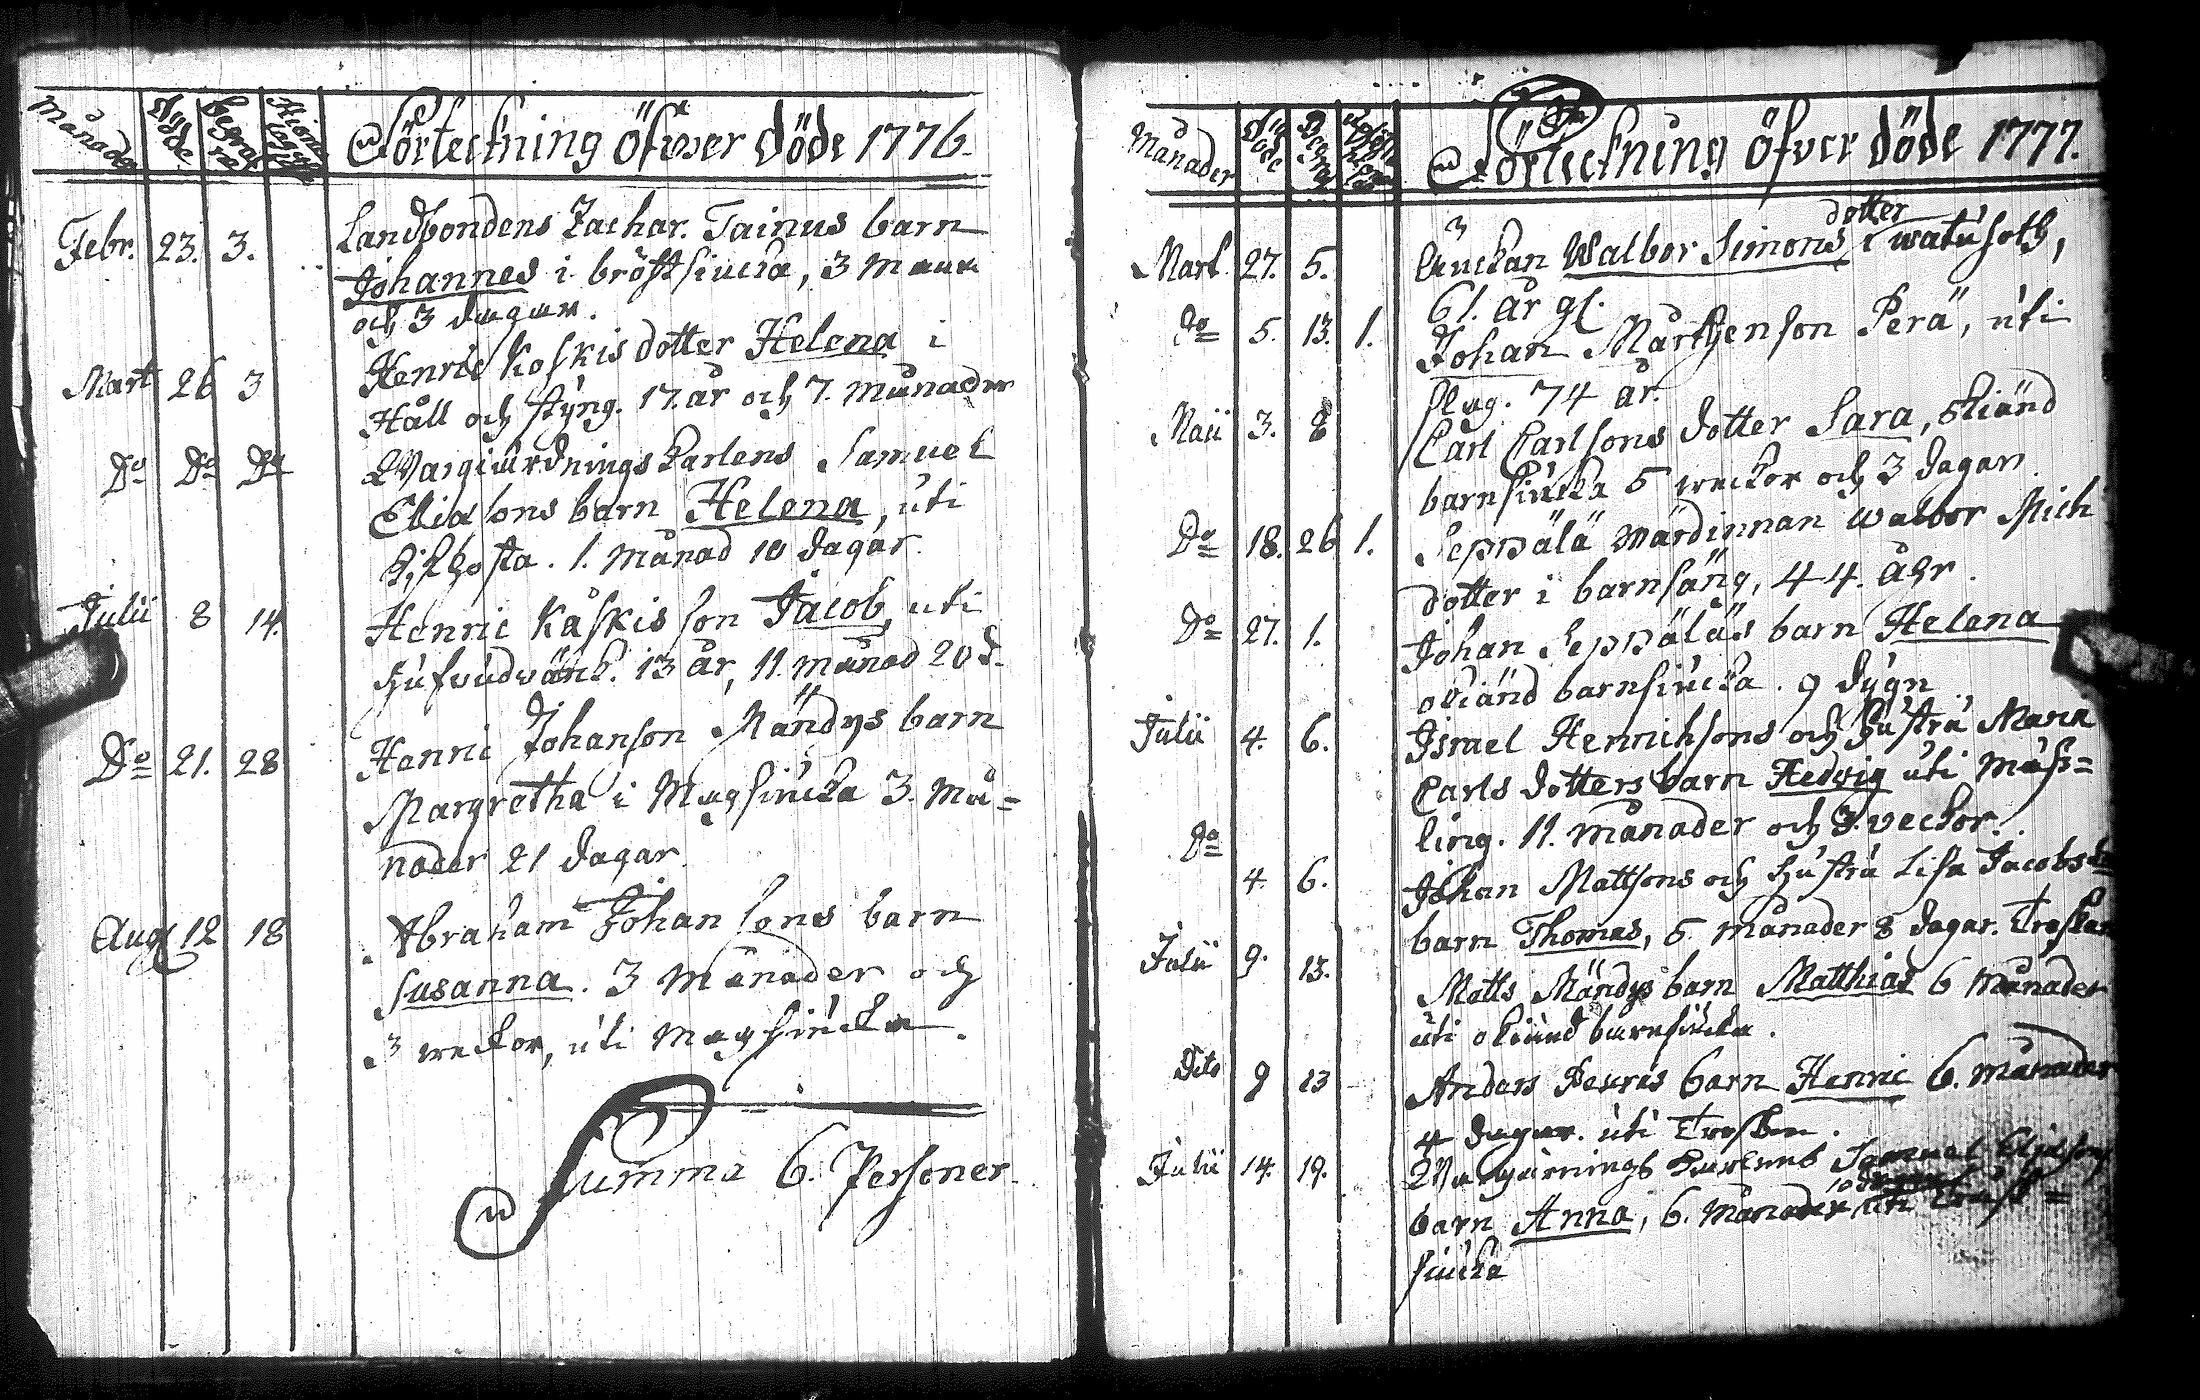 Månader Dödde Begraf
Förteckning öfwer döde 1776.
Febr. 23. 3. Landbondens Zachar. Tainus barn
Johannes i bröstsiucka, 3 Måna
och 3 dagar.
Mart 26 3 Henric Koskis dotter Helena i
Håll och styng. 17. år och 7. Månader
Do Do Do Qvargiärdningskarlens Samuel
Eliasons barn Helena, uti
Kikhosta. 1. Månad 10 dagar.
Julii 8 14. Henric Kåskis son Jacob, uti
hufvudvärk. 13 år, 11. månad 20 d.
Do 21. 28 Henric Johanson Mändys barn
Margretha i Magsiucka 3. Må-
nader 21 dagar
Aug 12 18 Abraham Johansons barn
Susanna. 3 Månader och
3 weckor, uti Magsiucka.
Summa 6. Personer.
Månader Döde Begraf
Förteckning öfver döde 1777.
dotter
Mart. 27. 5. Änckan Walbor Simons i watusoth,
61. år gl.
Do 5. 13. 1. Johan Mårthenson Perä, uti
slag. 74 år.
Maii 3. 8 Carl Carlsons dotter Sara, okiänd
barnsiucka 5 weckor och 3 dagar.
Do 18. 26 1. Seppälä wärdinnan Walbor Mich
dotter i barnsäng, 44. åhr.
Do 27. 1. Johan Seppäläs barn Helena
okiänd barnsiucka. 9 dygn
Julii 4. 6. Israel Henrichsons och hustru Maria
Carls dotters barn Hedvig uti Mäss=
ling. 11. månader och 3. veckor.
Do 4. 6. Johan Mattsons och hustru Lisa Jacobs
barn Thomas, 5. månader 8 dagar. Trosken
Julii 9. 13. Matts Mändys barn Matthias 6 Månader
uti okiänd barnsiucka.
Dito 9 13 Anders Peuras barn Henric 6. månader
4 dagar. uti Trosken.
Julii 14. 19. Samuel Eliasons
barn Anna, 6. Månader uti =
siucka